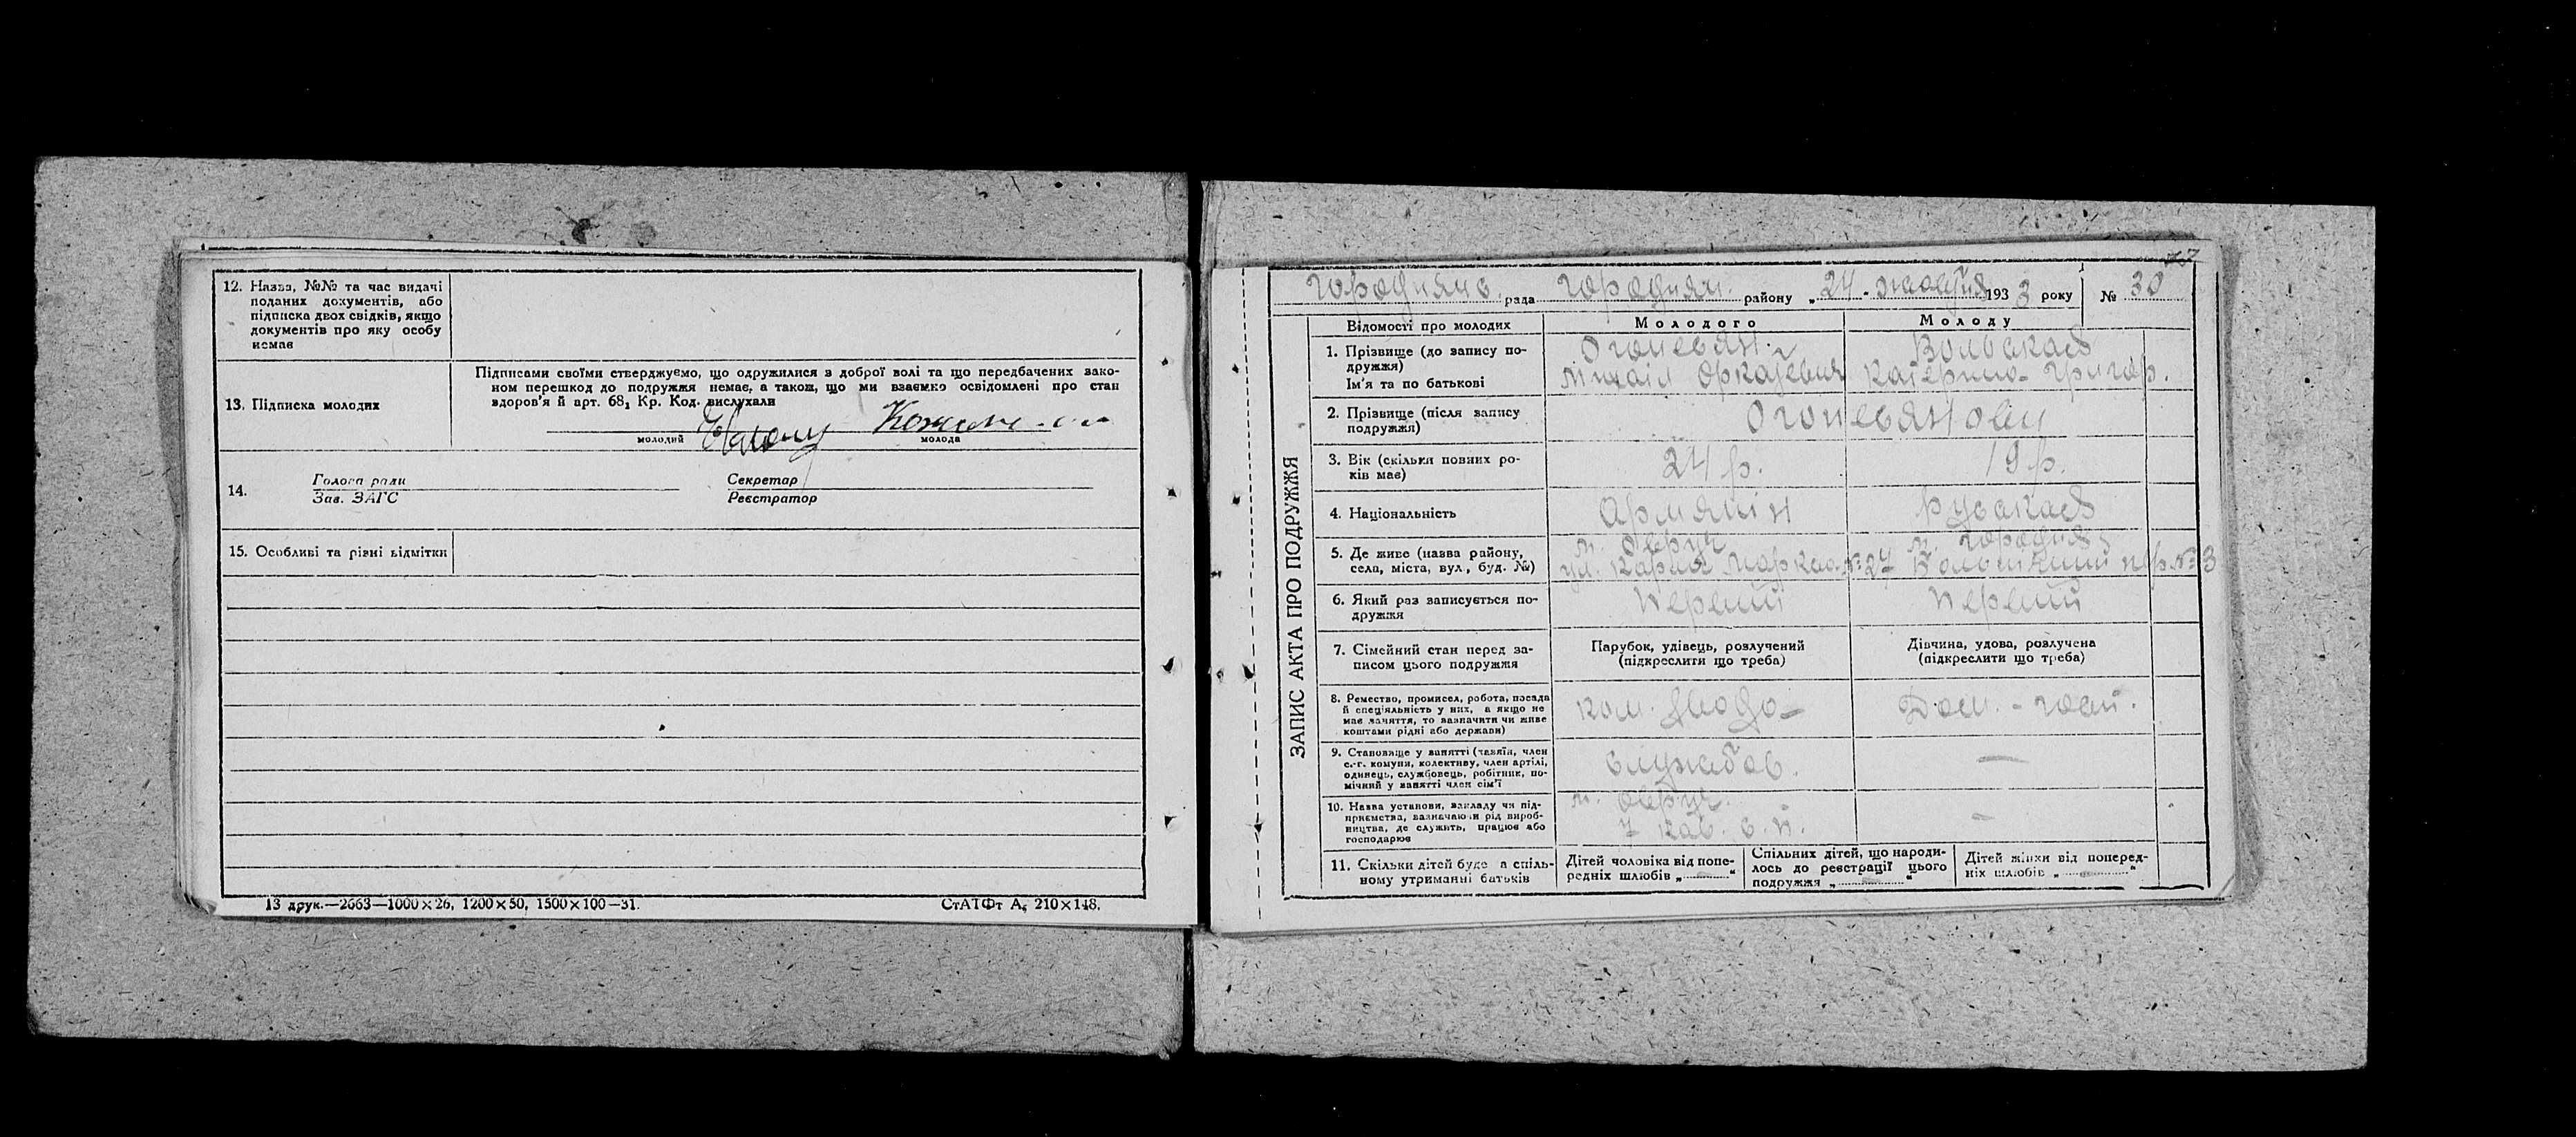 12. Назва, №№ та час видачі
поданих документів, або
підписка двох свідків, якщо
документів про яку особу
немає
13. Підписка молодих
Підписами своїми стверджуємо, що одружилися з доброї волі та що передбачених зако-
ном перешкод до подружжя немає, а також, що ми взаємно освідомлені про стан
здоров'я й арт. 68, Кр. Код. вислухали
молодий молода
14.
Голова ради
Зав. ЗАГС
Секретар
Реєстратор
15. Особливі та різні відмітки
13 друк.—2663—1000×26, 1200×50, 1500×100—31.
СтАТФт А₅ 210×148.
ЗАПИС АКТА ПРО ПОДРУЖЖЯ
рада району „24" 1933 року № 30
Відомості про молодих
Молодого
Молоду
1. Прізвище (до запису по-
дружжя)
Ім'я та по батькові
Михаіл
Катерина Григор.
2. Прізвище (після запису
подружжя)
3. Вік (скільки повних ро-
ків має)
24 р.
19 р.
4. Національність
Армянін
руськая
5. Де живе (назва району,
села, міста, вул., буд. №)
м. Овруч
ул. Карла Маркса № 27
м. Городня
пер. № 3
6. Який раз записується по-
дружжя
Первий
Первий
7. Сімейний стан перед за-
писом цього подружжя
Парубок, удівець, розлучений
(підкреслити що треба)
Дівчина, удова, розлучена
(підкреслити що треба)
8. Ремество, промисел, робота, посада
й спеціяльність у них, а якщо не
має заняття, то зазначити чи живе
коштами рідні або держави)
ком. взвода
Дом-хоз.
9. Становище у занятті (хазяїн, член
с.-г. комуни, колективу, член артілі,
одинець, службовець, робітник, по-
мічний у занятті член сім'ї
службов.
—
10. Назва установи, закладу чи під-
приємства, зазначаючи рід вироб-
ництва, де служить, працює або
господарює
м. Овруч.
7 кав. п.
—
11. Скільки дітей буде на спіль-
ному утриманні батьків
Дітей чоловіка від попе-
редніх шлюбів „ "
Спільних дітей, що народи-
лось до реєстрації цього
подружжя „ "
Дітей жінки від поперед-
ніх шлюбів „ "